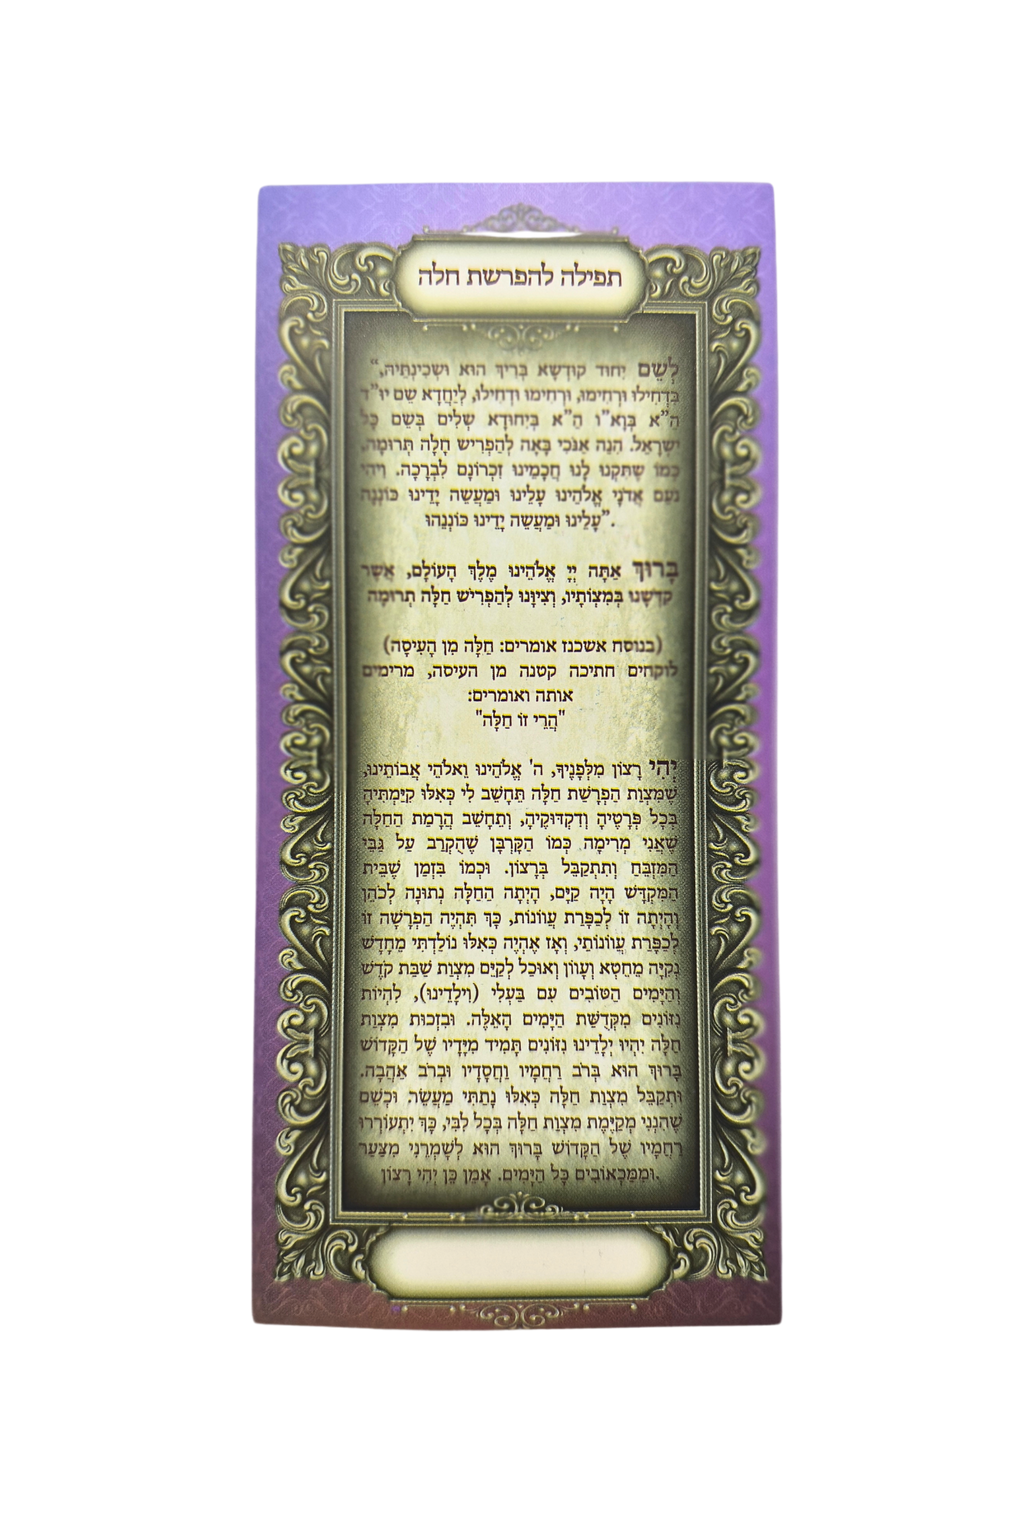 תפילה להפרשת חלה
לְשֵׁם יִחוּד קוּדְשָׁא בְּרִיךְ הוּא וּשְׁכִינְתֵּיהּ,"
בִּדְחִילוּ וּרְחִימוּ, וּרְחִימוּ וּדְחִילוּ, לְיַחֲדָא שֵׁם יוּ"ד
הֵ"א בְּוָא"ו הֵ"א בְּיִחוּדָא שְׁלִים בְּשֵׁם כָּל
יִשְׂרָאֵל. הִנֵּה אָנֹכִי בָּאָה לְהַפְרִישׁ חַלָּה תְּרוּמָה,
כְּמוֹ שֶׁתִּקְּנוּ לָנוּ חֲכָמֵינוּ זִכְרוֹנָם לִבְרָכָה. וִיהִי
נֹעַם אֲדֹנָי אֱלֹהֵינוּ עָלֵינוּ וּמַעֲשֵׂה יָדֵינוּ כּוֹנְנָה
עָלֵינוּ וּמַעֲשֵׂה יָדֵינוּ כּוֹנְנֵהוּ".
בָּרוּךְ אַתָּה יְיָ אֱלֹהֵינוּ מֶלֶךְ הָעוֹלָם, אֲשֶׁר
קִדְּשָׁנוּ בְּמִצְוֹתָיו, וְצִיוָּנוּ לְהַפְרִישׁ חַלָּה תְּרוּמָה
(בנוסח אשכנז אומרים: חַלָּה מִן הָעִיסָּה)
לוקחים חתיכה קטנה מן העיסה, מרימים
אותה ואומרים:
"הֲרֵי זוֹ חַלָּה"
יְהִי רָצוֹן מִלְּפָנֶיךָ, ה' אֱלֹהֵינוּ וֵאלֹהֵי אֲבוֹתֵינוּ,
שֶׁמִּצְוַת הַפְרָשַׁת חַלָּה תֵּחָשֵׁב לִי כְּאִלּוּ קִיַּמְתִּיהָ
בְּכָל פְּרָטֶיהָ וְדִקְדּוּקֶיהָ, וְתֵחָשֵׁב הֲרָמַת הַחַלָּה
שֶׁאֲנִי מְרִימָה כְּמוֹ הַקָּרְבָּן שֶׁהֻקְרַב עַל גַּבֵּי
הַמִּזְבֵּחַ וְתִתְקַבֵּל בְּרָצוֹן. וּכְמוֹ בִּזְמַן שֶׁבֵּית
הַמִּקְדָּשׁ הָיָה קַיָּם, הָיְתָה הַחַלָּה נְתוּנָה לַכֹּהֵן
וְהָיְתָה זוֹ לְכַפָּרַת עֲווֹנוֹת, כָּךְ תִּהְיֶה הַפְרָשָׁה זוֹ
לְכַפָּרַת עֲווֹנוֹתַי, וְאָז אֶהְיֶה כְּאִלּוּ נוֹלַדְתִּי מֵחָדָשׁ
נְקִיָּה מֵחֵטְא וְעָווֹן וְאוּכַל לְקַיֵּם מִצְוַת שַׁבַּת קֹדֶשׁ
וְהַיָּמִים הַטּוֹבִים עִם בַּעְלִי (וִילָדֵינוּ), לִהְיוֹת
נִזּוֹנִים מִקְּדֻשַּׁת הַיָּמִים הָאֵלֶּה. וּבִזְכוּת מִצְוַת
חַלָּה יִהְיוּ יְלָדֵינוּ נִזּוֹנִים תָּמִיד מִיָּדָיו שֶׁל הַקָּדוֹשׁ
בָּרוּךְ הוּא בְּרֹב רַחֲמָיו וַחֲסָדָיו וּבְרֹב אַהֲבָה.
וּתְקַבֵּל מִצְוַת חַלָּה כְּאִלּוּ נָתַתִּי מַעֲשֵׂר. וּכְשֵׁם
שֶׁהִנְנִי מְקַיֶּמֶת מִצְוַת חַלָּה בְּכָל לִבִּי, כָּךְ יִתְעוֹרְרוּ
רַחֲמָיו שֶׁל הַקָּדוֹשׁ בָּרוּךְ הוּא לְשָׁמְרֵנִי מִצַּעַר
וּמִמַּכְאוֹבִים כָּל הַיָּמִים. אָמֵן כֵּן יְהִי רָצוֹן.